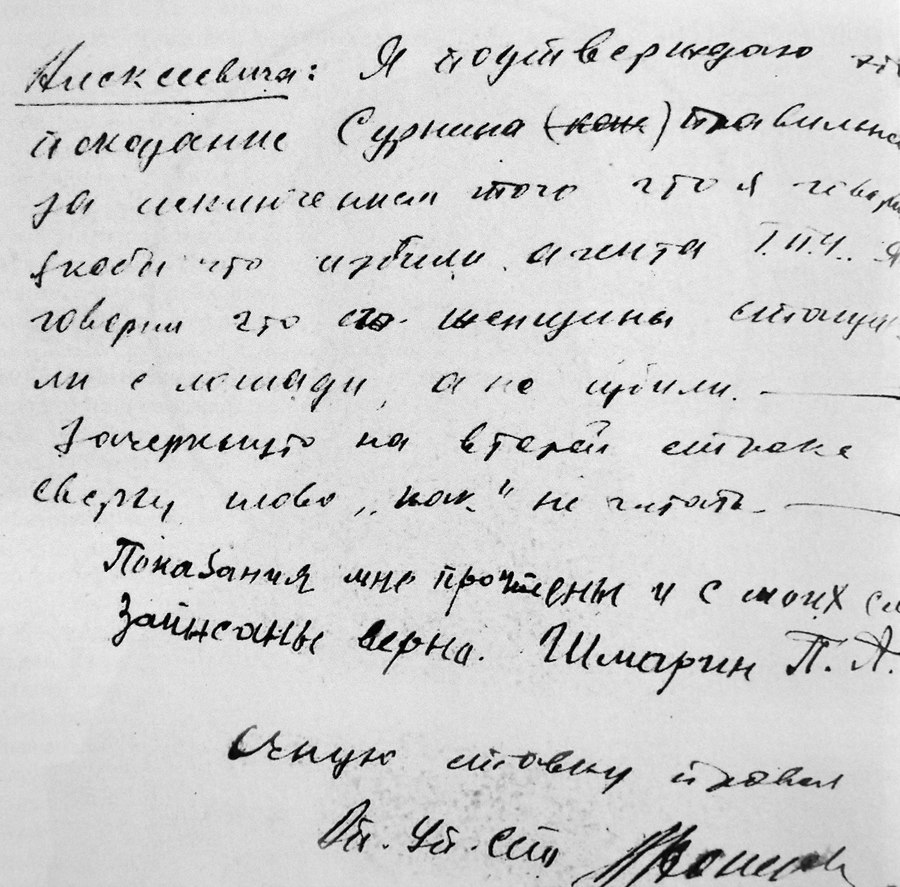 Алексеевича: Я подтверждаю что
показание Сурнина (как) правильно
за исключением того что я говорил
якобы что избили агента Г.П.У. Я
говорил что женщины стащи-
ли с лошади, а не избили. —
Зачеркнуто на второй строке
сверху слово „как" не читать. —
Показания мне прочтены и с моих сл
записаны верна. Шмарин П. А.
Очную ставку провел
Оп. Уп. СПО